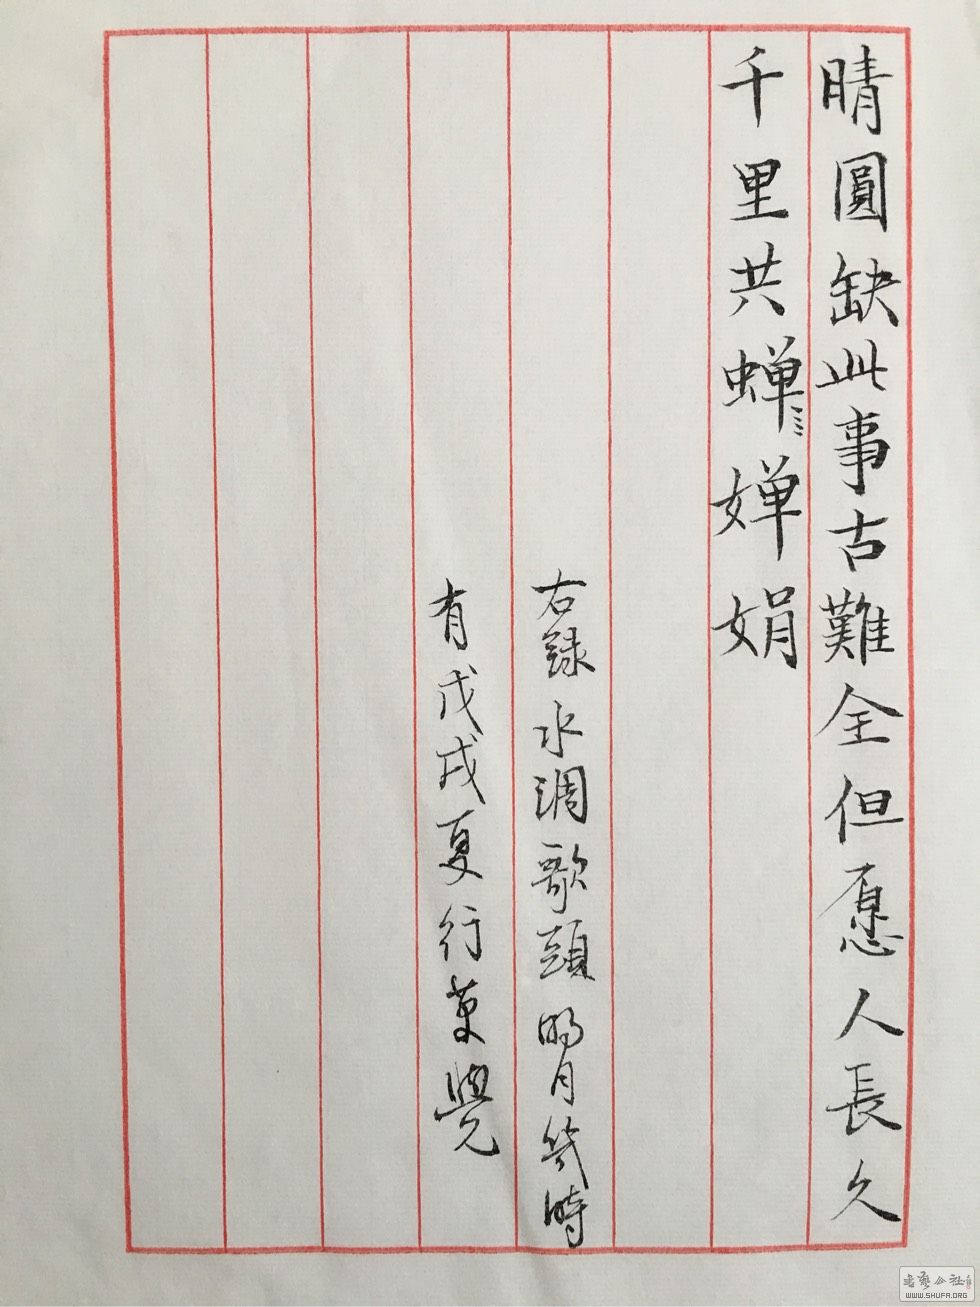 晴圓缺此事古難全但愿人長久
千里共蝉婵娟
右録水调歌頭明月幾時
有戊戌夏行草覺
書艺公社
WWW.SHUFA.ORG